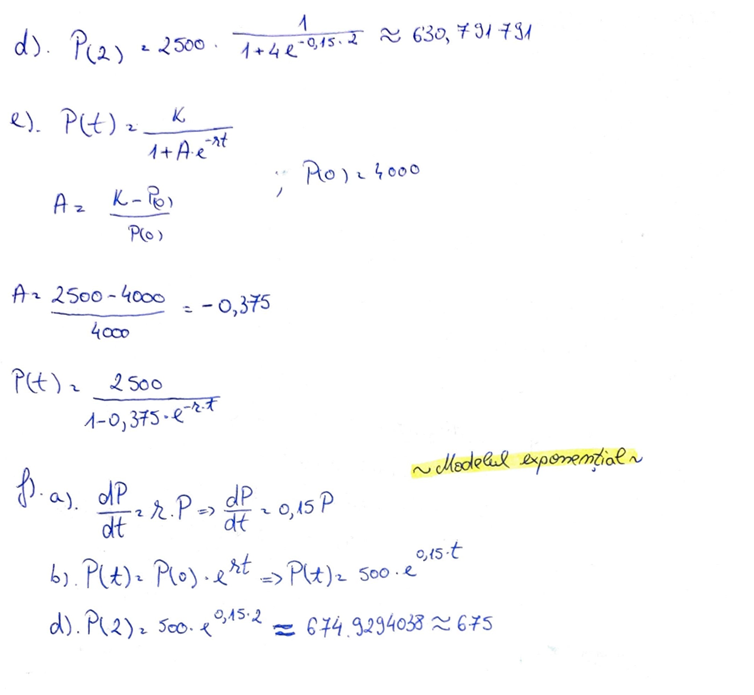 d). P(2) = 2500 · 1/(1+4e^(-0,15·2)) ≈ 630,791791
e). P(t) = K/(1+A·e^(-rt))
; P(0) = 4000
A = (K-P(0))/P(0)
A = (2500-4000)/4000 = -0,375
P(t) = 2500/(1-0,375·e^(-r·t))
~ Modelul exponențial ~
f). a). dP/dt = r.P => dP/dt = 0,15 P
b). P(t) = P(0)·e^(rt) => P(t) = 500·e^(0,15·t)
d). P(2) = 500·e^(0,15·2) = 674.9294038 ≈ 675